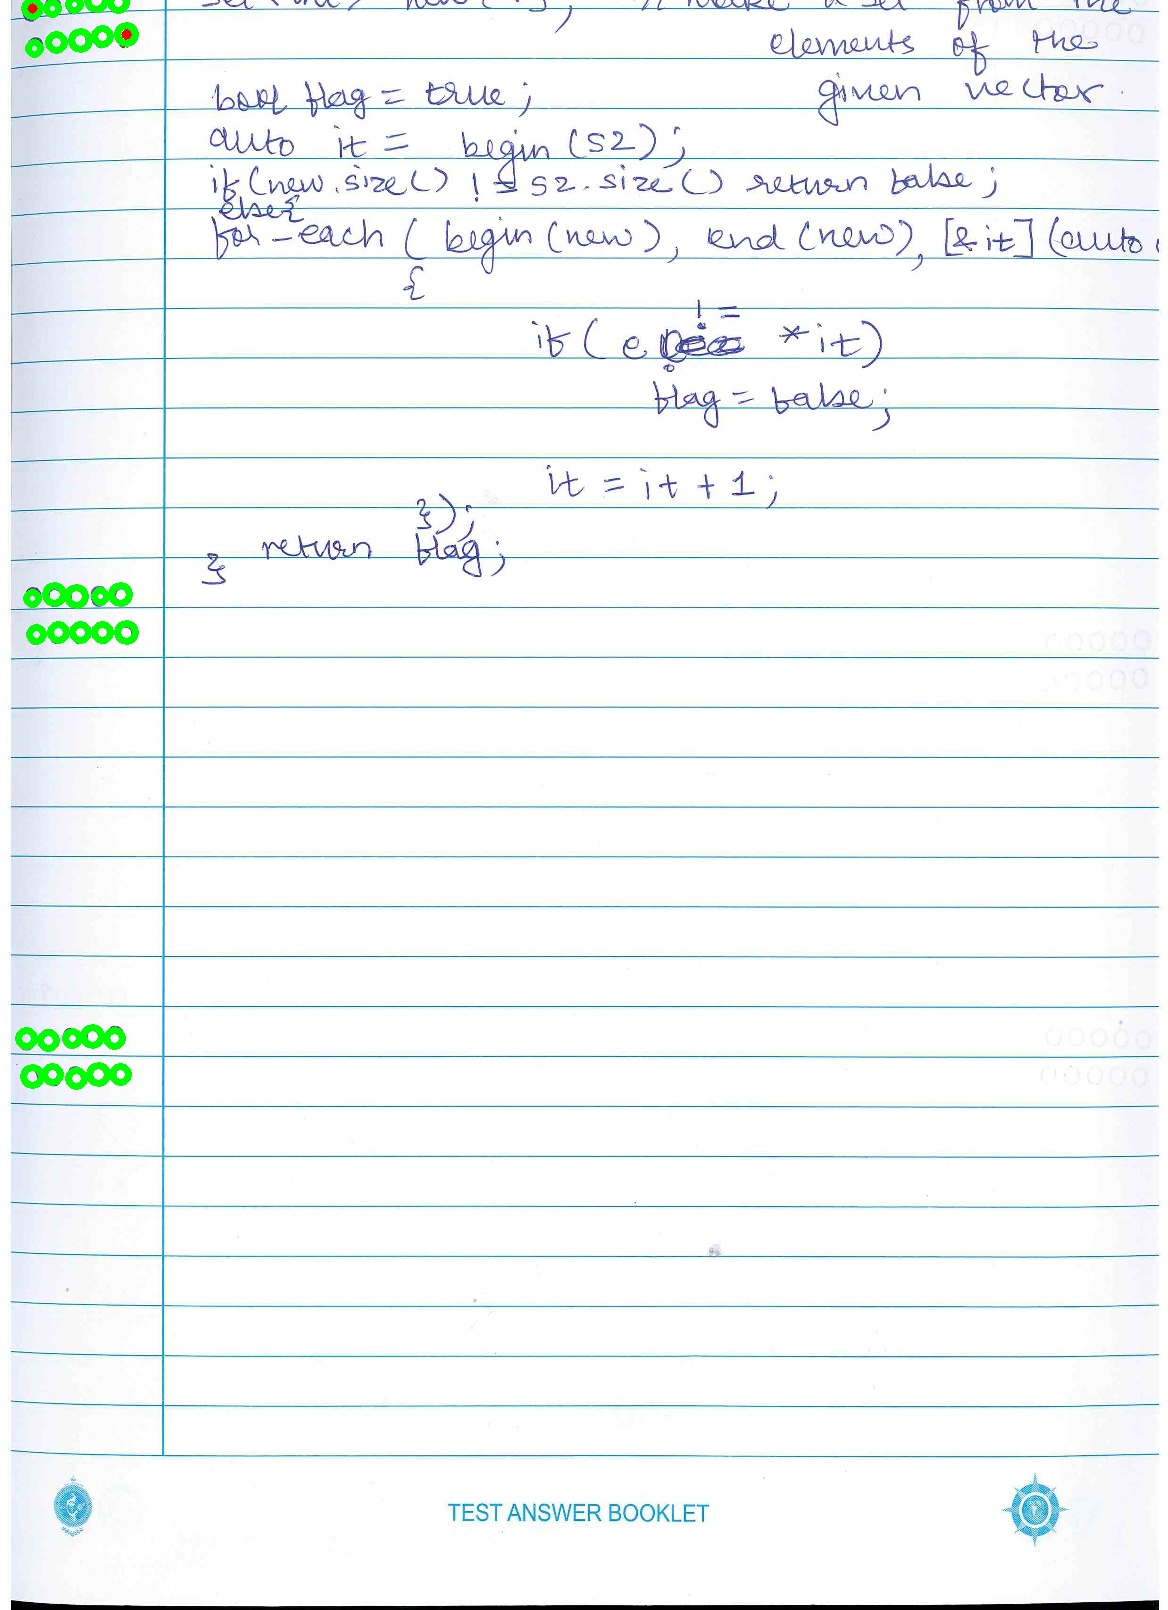 set<int> new( ); // make a set from the
elements of the
given vector.
bool flag = true;
auto it = begin (s2);
if (new.size() != s2.size() return false;
else{
for-each ( begin (new), end (new), [& it] (auto
{
if ( e != *it)
flag = false;
it = it + 1;
});
return flag;
}
TEST ANSWER BOOKLET